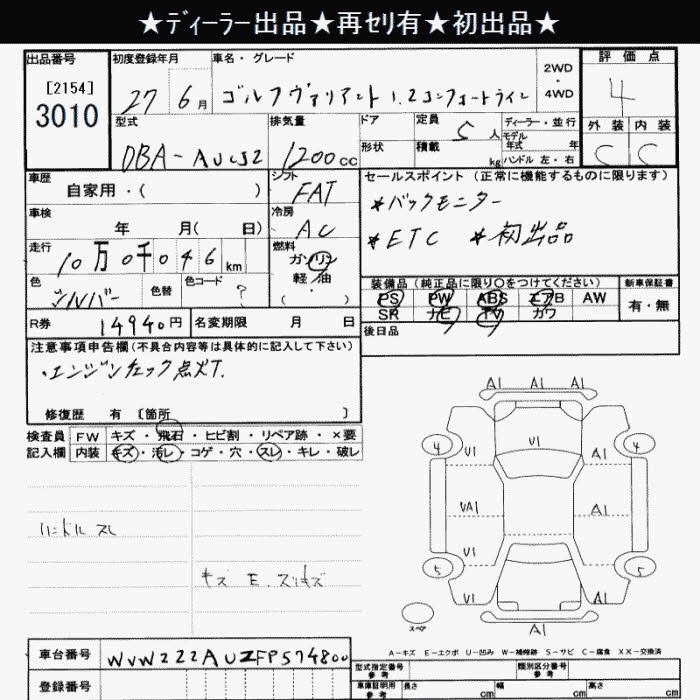 ★ディーラー出品★再セリ有★初出品★
出品番号 初度登録年月 車名・グレード 2WD・4WD 評価点
[2154]
3010
27 6月 ゴルフヴァリアント 1.2コンフォートライン 4
型式 排気量 ドア 定員 5人 ディーラー・並行 外装 内装
DBA-AUCJZ 1200cc 形状 積載 kg モデル年式 年 ハンドル 左・右 C C
車歴 自家用・( ) シフト FAT セールスポイント (正常に機能するものに限ります)
車検 年 月( 日) 冷房 AC *バックモニター
走行 10万0千046km 燃料 ガソリン 軽油 ・( ) *ETC *初出品
色 シルバー 色替 色コード ? 装備品 (純正品に限り○をつけてください) 新車保証書
PS PW ABS エアB AW 有・無
SR ナビ TV カワ
R券 14940円 名変期限 月 日 後日品
注意事項申告欄 (不具合内容等は具体的に記入して下さい)
・エンジンチェック点灯.
修復歴 有 [箇所 ]
検査員 FW キズ・飛石・ヒビ割・リペア跡・×要
記入欄 内装 キズ・汚レ・コゲ・穴・スレ・キレ・破レ
A1 A1 A1
4 U1 U1 A1 4
UA1 A1
U1
5 5
U1 A1
スペア A1
ハンドル スレ
キズ E. スリキズ
A-キズ E-エクボ U-凹み W-補修跡 S-サビ C-腐食 XX-交換済
車台番号 WVWZZZAUZFP574800 型式指定番号 参考 類別区分番号 参考
登録番号 車庫証明用 参考 長さ cm 幅 cm 高さ cm